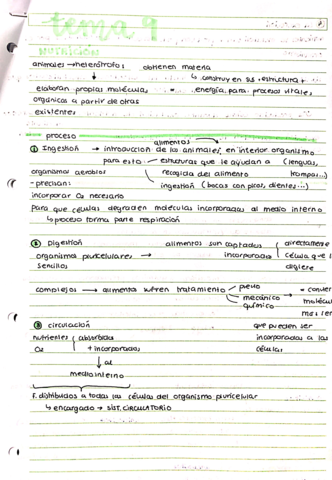 tema 9
NUTRICIÓN
animales → heterótrofos: obtienen materia
↳ construyen sus estructura +
elaboran propias molécula, energía para procesos vitales,
orgánicas a partir de otras
existentes.
proceso
① Ingestión → introducción de los alimentos animales, en interior organismo
para esto estructuras que le ayudan a (lenguas,
organismos aerobios recogida del alimento trompas...)
- precisan: ingestión (bocas con picos, dientes...)
incorporar O₂ necesario
para que células degraden moléculas incorporadas al medio interno
↳ proceso forma parte respiración
② Digestión alimentos son captados directamente
organismos pluricelulares → incorporados célula que
sencillos digiere
complejos → alimentos sufren tratamiento previo
mecánico
químico
③ circulación que pueden ser
nutrientes absorbidos incorporadas a las
O₂ + incorporados células
↓ al
medio interno
F. distribuidos a todas las células del organismo pluricelular
↳ encargado → SIST. CIRCULATORIO